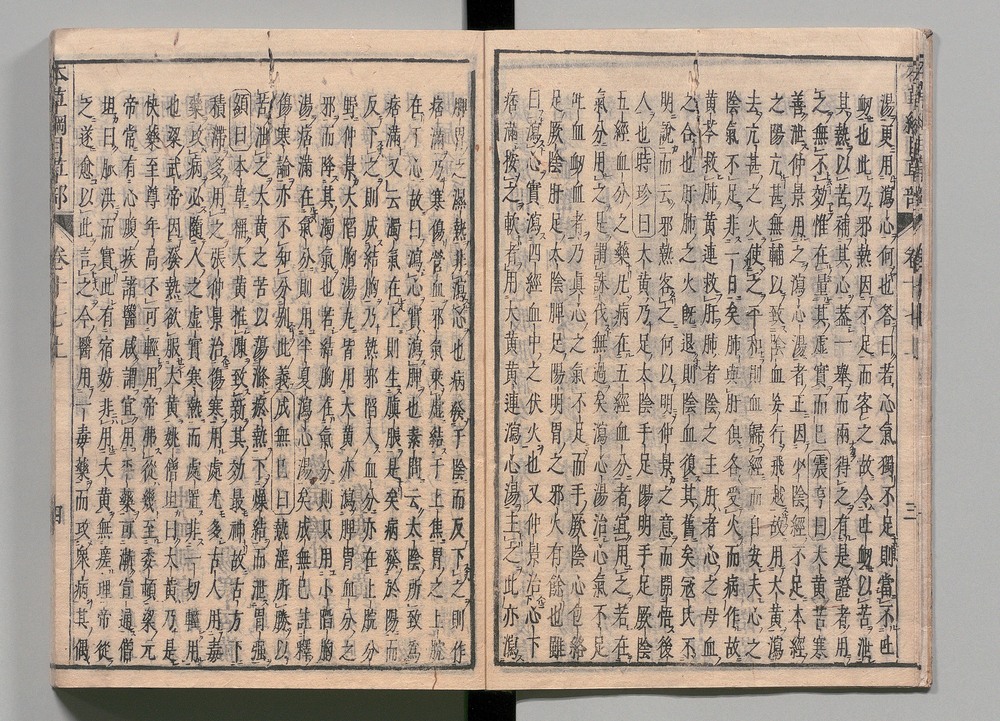 湯更用瀉心何也答曰若心氣獨不足則當不吐
衄也此乃邪熱因不足而客之故令吐衄以苦泄
其熱以苦補其心蓋一舉而兩得之有是證者用
之無不効惟在量其虛實而已震亨曰大黃苦寒
善泄仲景用之瀉心湯者正因少陰經不足本經
之陽亢甚無輔以致陰血妄行飛越故用大黃瀉
去亢甚之火使之平和則血歸經而自安夫心之
陰氣不足非一日矣肺與肝俱各受火而病作故
黃芩救肺黃連救肝肺者陰之主肝者心之母血
之合也肝肺之火既退則陰血復其舊矣冦氏不
明說而云邪熱客之何以明仲景之意而開悟後
人也時珍曰大黃乃足太陰手足陽明手足厥陰
五經血分之藥凢病在五經血分者宜用之若在
氣分用之是謂誅伐無過矣瀉心湯治心氣不足
吐血衄血者乃真心之氣不足而手厥陰心包絡
足厥陰肝足太陰脾足陽明胃之邪火有餘也雖
曰瀉心實瀉四經血中之伏火也又仲景治心下
痞滿按之軟者用大黃黃連瀉心湯主之此亦瀉
脾胃之濕熱非瀉心也病發于陰而反下之則作
痞滿乃寒傷營血邪氣乘虛結于上焦胃之上脘
在于心故曰瀉心實瀉脾也素問云太陰所致爲
痞滿又云濁氣在上則生䐜脹是矣病發於陽而
反下之則成結胸乃熱邪陷入血分亦在上脘分
野仲景大陷胸湯丸皆用大黃亦瀉脾胃血分之
邪而降其濁氣也若結胸在氣分則只用小陷胸
湯痞滿在氣分則用半夏瀉心湯矣成無已註釋
傷寒論亦不知分別此義成無已曰熱淫所勝以
苦泄之大黃之苦以蕩滌瘀熱下燥結而泄胃強
頌曰本草稱大黃推陳致新其効最神故古方下
積滯多用之張仲景治傷寒用處尤多古人用毒
藥攻病必隨人之虛實寒熱而處置非一切輕用
也梁武帝因發熱欲服大黃姚僧坦曰大黃乃是
快藥至尊年高不可輕用帝弗從幾至委頓梁元
帝常有心腹疾諸醫咸謂宜用平藥可漸宣通僧
坦曰脉洪而實此有宿妨非用大黃無瘥理帝從
之遂愈以此言之今醫用一毒藥而攻衆病其偶
三
四
本草綱目草部
卷十七上